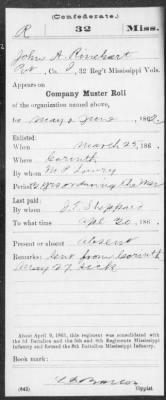 (Confederate.)
R 32 Miss.
John A. Rinehart
Pvt, Co. , 32 Reg't Mississippi Vols.
Appears on
Company Muster Roll
of the organization named above,
for May & June, 186
Enlisted:
When March 29, 186 .
Where Corinth
By whom M P Lowry
Period
Last paid:
By whom J. T. Sheppard
To what time Apl 30, 186 .
Present or absent Absent
Remarks: Sent from Corinth
May 27 sick
About April 9, 1865, this regiment was consolidated with
the 3d Battalion and the 5th and 8th Regiments Mississippi
Infantry and formed the 8th Battalion Mississippi Infantry.
Book mark:
(642)
Copyist.